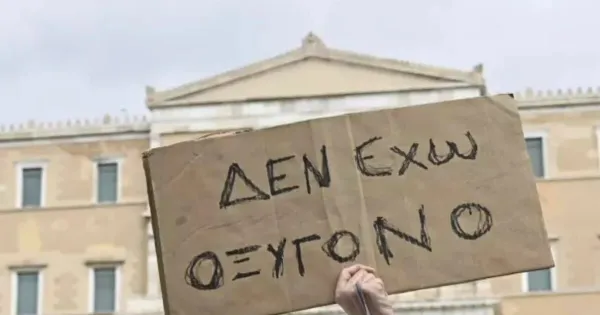 ΔΕΝ ΕΧω
ΟΞΥΓΟΝΟ